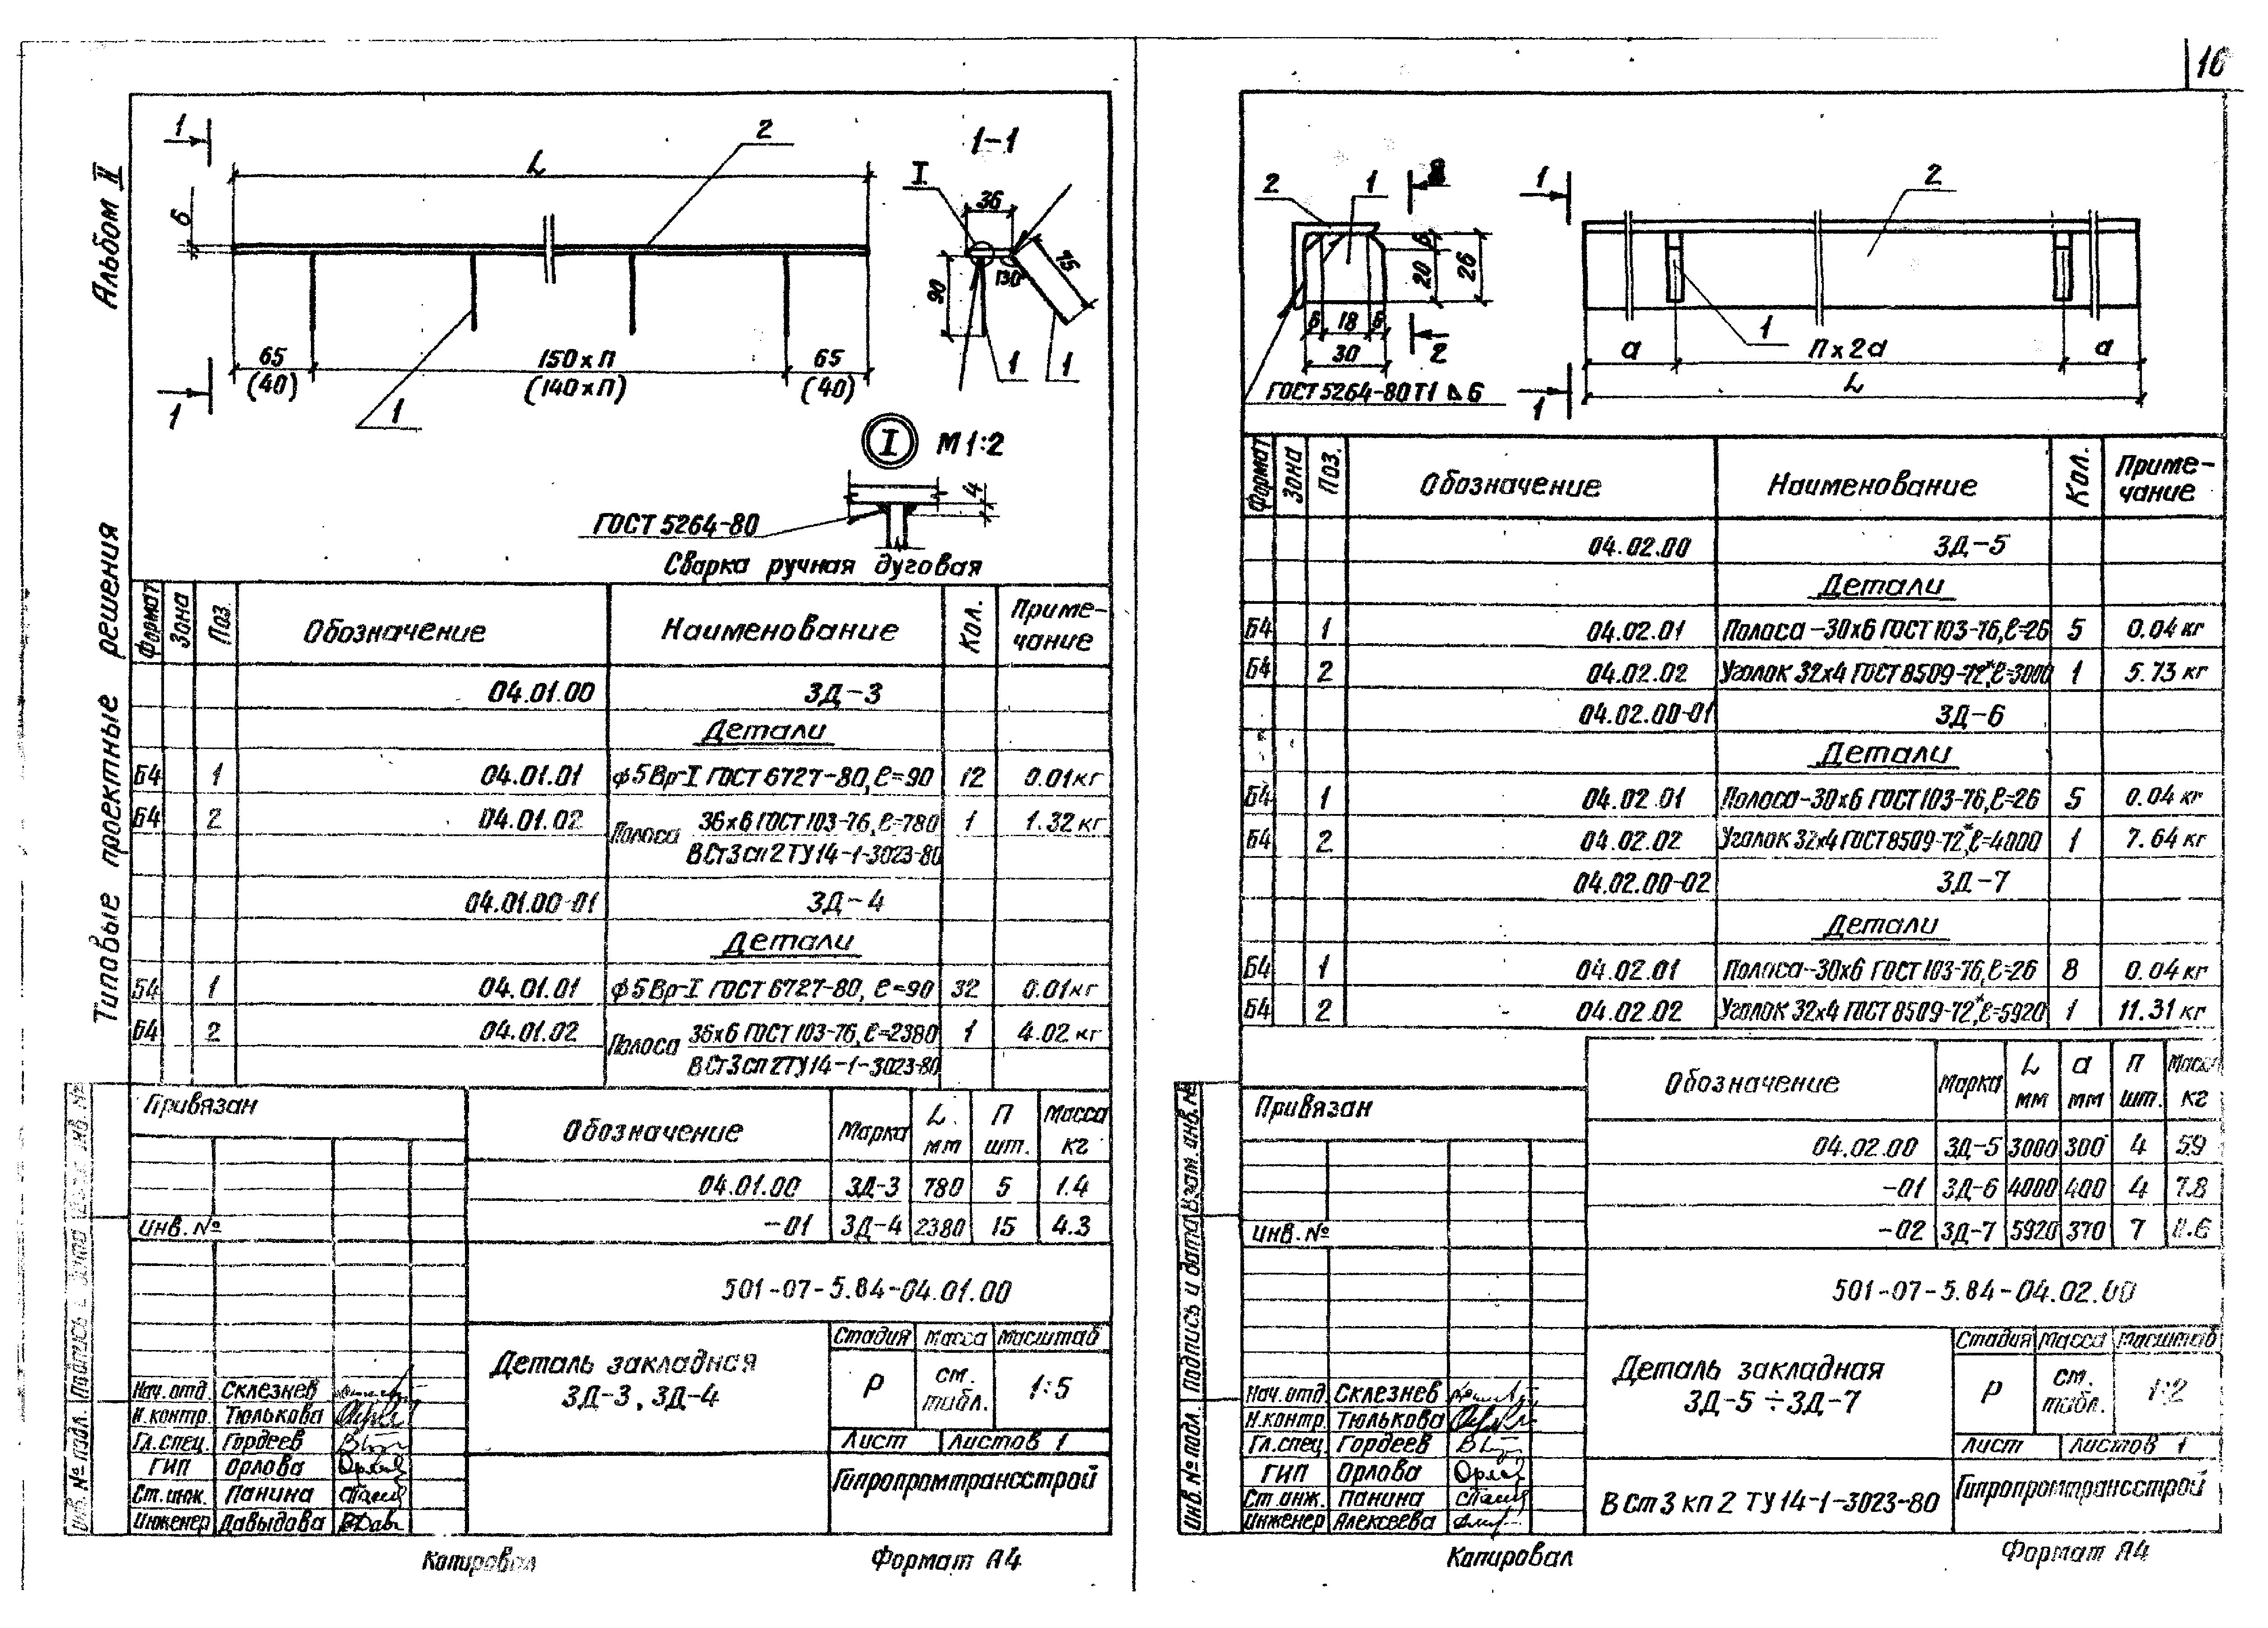 16
Альбом II
Типовые проектные решения
1
L
2
1-1
I
36
6
90
130°
75
1
1
65
150×П
65
(40)
(140×П)
(40)
1
1
I М 1:2
4
ГОСТ 5264-80
Сварка ручная дуговая
Формат Зона Поз. Обозначение Наименование Кол. Приме-
чание
04.01.00 ЗД-3
Детали
Б4 1 04.01.01 ϕ5Вр-I ГОСТ 6727-80, ℓ=90 12 0.01кг
Б4 2 04.01.02 Полоса 36×6 ГОСТ 103-76, ℓ=780 1 1.32 кг
ВСт3сп2ТУ14-1-3023-80
04.01.00-01 ЗД-4
Детали
Б4 1 04.01.01 ϕ5Вр-I ГОСТ 6727-80, ℓ=90 32 0.01кг
Б4 2 04.01.02 Полоса 36×6 ГОСТ 103-76, ℓ=2380 1 4.02 кг
ВСт3сп2ТУ14-1-3023-80
Привязан
Инв. №
Обозначение Марка L мм П шт. Масса кг
04.01.00 ЗД-3 780 5 1.4
-01 ЗД-4 2380 15 4.3
501-07-5.84-04.01.00
Деталь закладная
ЗД-3, ЗД-4
Стадия Масса Масштаб
Р см. табл. 1:5
Лист Листов 1
Гипропромтрансстрой
Нач. отд. Склезнев
Н. контр. Тюлькова
Гл. спец. Гордеев
ГИП Орлова
Ст. инж. Панина
Инженер Давыдова
Инв. № подл.
Копировал
Формат А4
2
1
1
2
6
20
26
6 18 6
30
2
ГОСТ 5264-80 Т1 ⊿ 6
1
а
П×2а
а
L
1
Формат Зона Поз. Обозначение Наименование Кол. Приме-
чание
04.02.00 ЗД-5
Детали
Б4 1 04.02.01 Полоса -30×6 ГОСТ 103-76, ℓ=26 5 0.04 кг
Б4 2 04.02.02 Уголок 32×4 ГОСТ 8509-72*, ℓ=3000 1 5.73 кг
04.02.00-01 ЗД-6
Детали
Б4 1 04.02.01 Полоса-30×6 ГОСТ 103-76, ℓ=26 5 0.04 кг
Б4 2 04.02.02 Уголок 32×4 ГОСТ 8509-72*, ℓ=4000 1 7.64 кг
04.02.00-02 ЗД-7
Детали
Б4 1 04.02.01 Полоса-30×6 ГОСТ 103-76, ℓ=26 8 0.04 кг
Б4 2 04.02.02 Уголок 32×4 ГОСТ 8509-72*, ℓ=5920 1 11.31 кг
Привязан
Инв. №
Обозначение Марка L мм а мм П шт. Масса кг
04.02.00 ЗД-5 3000 300 4 5.9
-01 ЗД-6 4000 400 4 7.8
-02 ЗД-7 5920 370 7 11.6
501-07-5.84-04.02.00
Деталь закладная
ЗД-5 ÷ ЗД-7
Стадия Масса Масштаб
Р см. табл. 1:2
Лист Листов 1
ВСт3кп2 ТУ14-1-3023-80
Гипропромтрансстрой
Нач. отд. Склезнев
Н. контр. Тюлькова
Гл. спец. Гордеев
ГИП Орлова
Ст. инж. Панина
Инженер Алексеева
Инв. № подл. Подпись и дата Взам. инв. №
Копировал
Формат А4